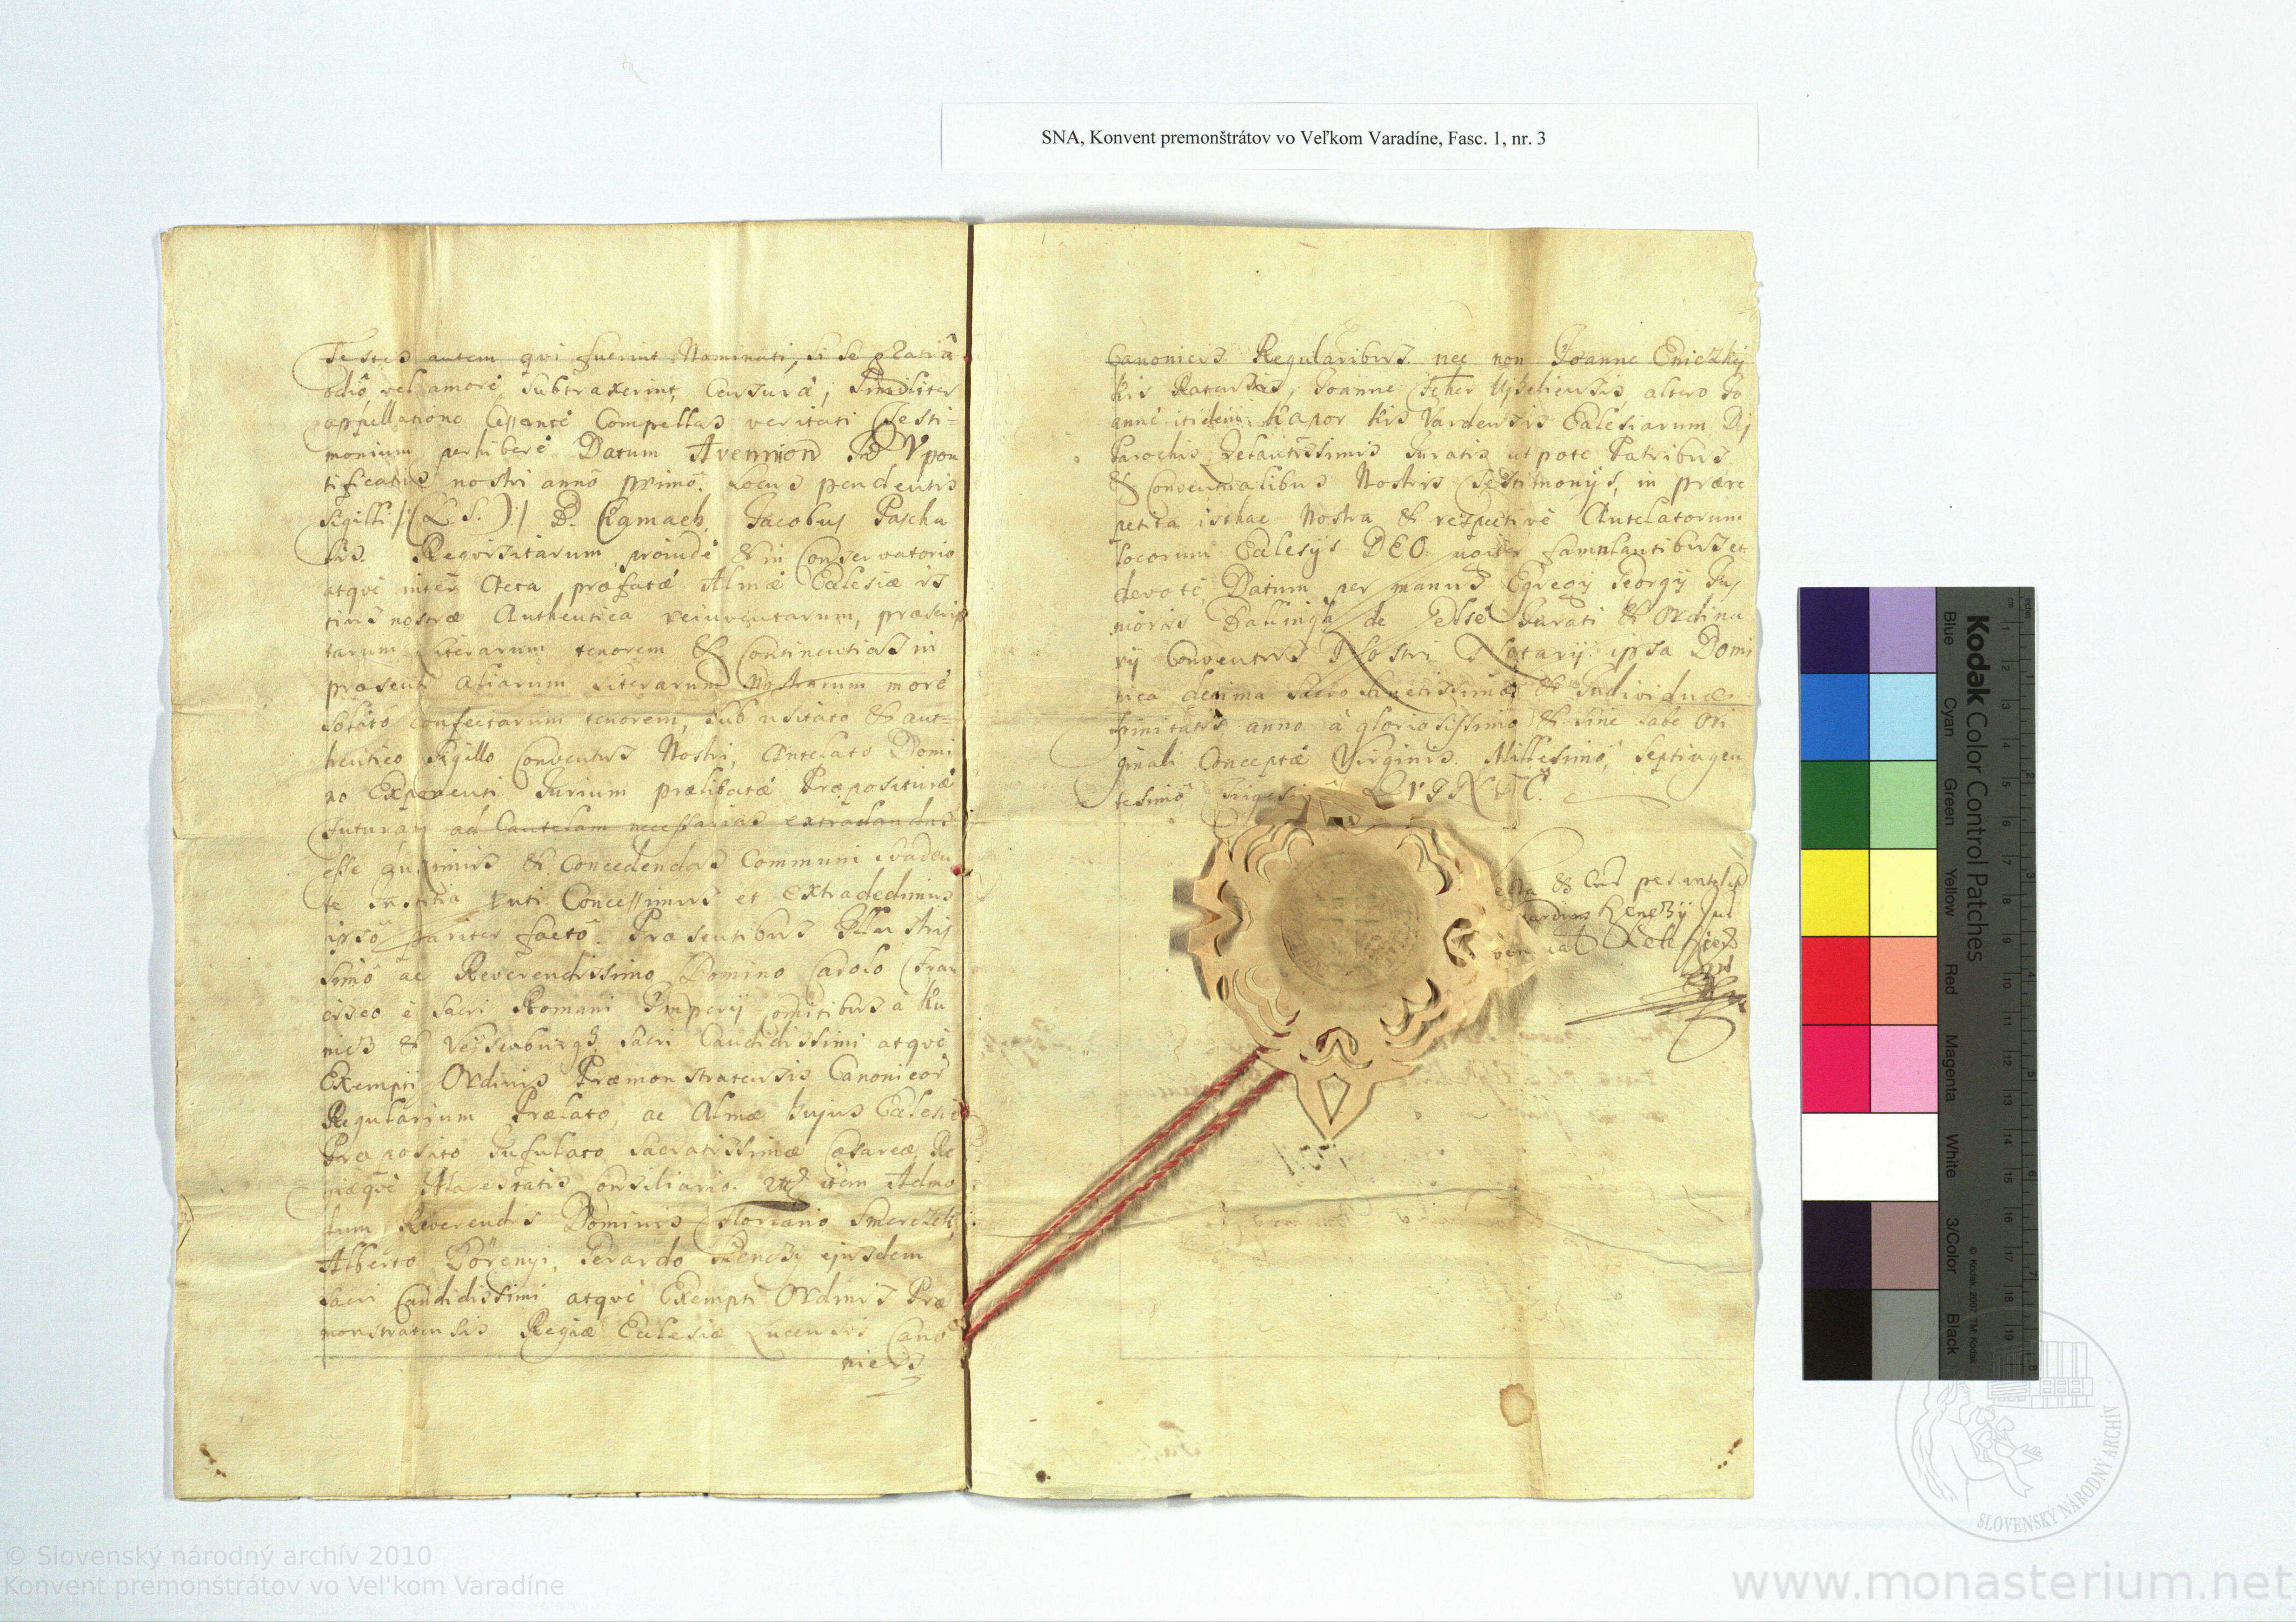 SNA, Konvent premonštrátov vo Veľkom Varadíne, Fasc. 1, nr. 3
Testes autem qvi fuerint Nominati, si se gratiâ
odiô, vel amorè subtraxerint, Censurâ, Similiter
appellatione Cessantè Compellas veritati Testi=
monium perhiberè Datum Avennion
tificatus nostri annô primô. Locus pendentis
Sigilli /:( L. S. ):/ D. Camach. Jacobus Pascha
lis. Reqvisitarum proindè & in Conservatorio
atqvè inter Acta præfatæ Almæ Ecclesiæ is
tius nostræ Authentica reinventarum, præscrip
tarum Literarum tenorem & Continentias in
præsenti aliarum Literarum Nostrarum morè
solitô confectarum tenorem, sub usitato & aut=
hentico Sigillo Conventus Nostri, Antelato Domi
no Exponenti Jurium prælibatæ Præposituræ
futuram ad Cautelam necessarias extradandas
esse duximus & Concedendas Communi svaden
te Justitia Uti Concessimus et extradedimus
ipsô pariter factô. Præsentibus Illustris
simô ac Reverendissimo Domino Carolo Fran
cisco è Sacri Romani Imperij Comitibus à Ku
nicz & Veissenburg, Sacri Candidissimi atqvè
Exempti Ordinis Præmonstratensis Canonicor
Regularium Prælato, ac Almæ hujus Ecclesiæ
Præposito Infulato, Sacratissimæ Cæsareæ, Re
giæqvè Maestatis Consiliario. item Admo
dum Reverendis Dominis Floriano Smerczek,
Alberto Pörenyi, Gerardo Kenczy ejusdem
Sacri Candidissimi atqvè Exempti Ordinis Præ
monstratensis Regiæ Ecclesiæ Lucensis Cano
nicis
Canonicis Regularibus nec non Joanne Eniczkij
Kis Joanne Feher altero Jo
annè itidem Kapor Kis Vardensis Ecclesiarum
Parochis Juratis utpote Patribus
& Conventualibus Nostris Testimonijs, in prære
petita isthac Nostra & respectivè Antelatorum
locorum Ecclesijs DEO famulantibus et
devotè, Datum per manus Egregij Georgij
de Jurati & Ordina
rij Conventus Nostri Notarij ipsa Domi
nica decima Sacro Sanctissimæ & Individuæ
trinitatis anno à gloriosissimo & sine labe Ori
ginali Conceptæ Virginis. Millesimô, Septingen
tesimô
per antelat
Kenczy
Kodak Color Control Patches
Blue
Cyan
Green
Yellow
Red
Magenta
White
3/Color
Black
© Kodak, 2007 TM: Kodak
SLOVENSKÝ NÁRODNÝ ARCHÍV
© Slovenský národný archív 2010
Konvent premonštrátov vo Vel'kom Varadíne
www.monasterium.net